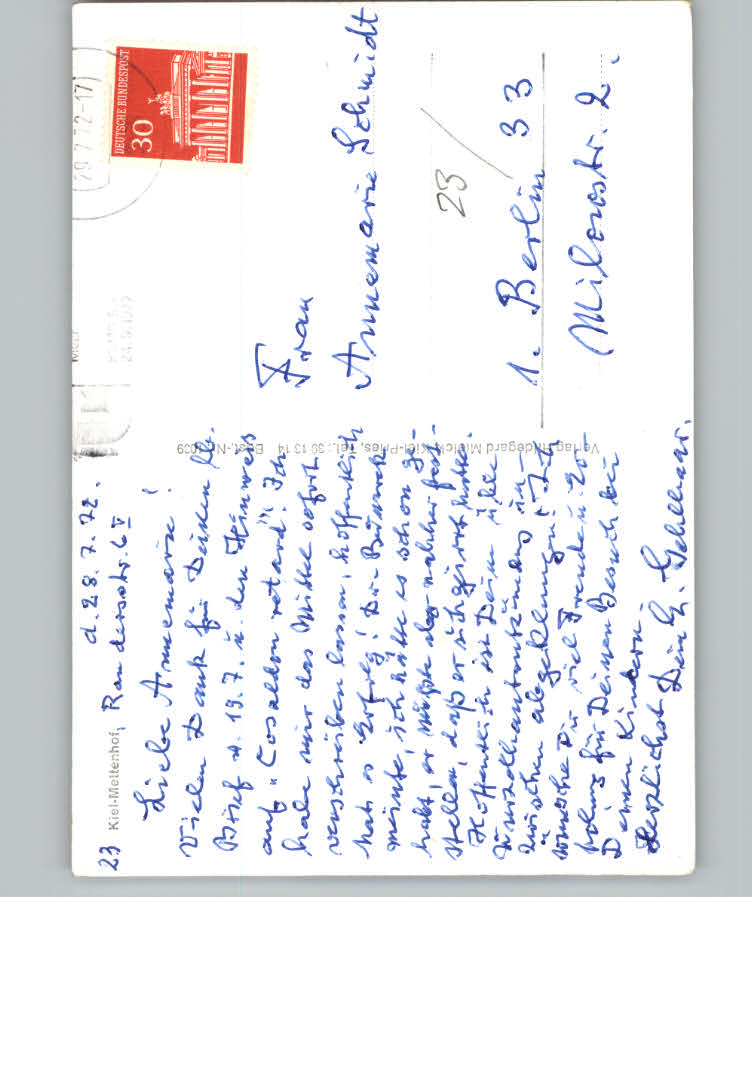 23 Kiel-Mettenhof, Randersstr. 6 V
d. 28.7.72.
Liebe Annemarie!
Vielen Dank für Deinen lb.
Brief v. 19.7. u. den Hinweis
auf "Cosaldon retard". Ich
habe mir das Mittel sofort
verschreiben lassen, hoffentlich
hat es Erfolg! Dr.
meinte, ich hätte es schon ge-
habt, er mußte aber nachher fest-
stellen, daß er sich geirrt hatte.
Hoffentlich ist Deine üble
Wurzelhautentzündung in-
zwischen abgeklungen! Ich
wünsche Dir viel Freude u. Er-
holung für Deinen Besuch bei
Deinen Kindern.
Herzlichst Dein
Verlag Hildegard Mielck, Kiel-Pries, Tel.: 39 13 14 Best.-Nr. 1039
DEUTSCHE BUNDESPOST
30
29.7.72-17
Frau
Annemarie Schmidt
23/
1. Berlin 33
Milowstr. 2.